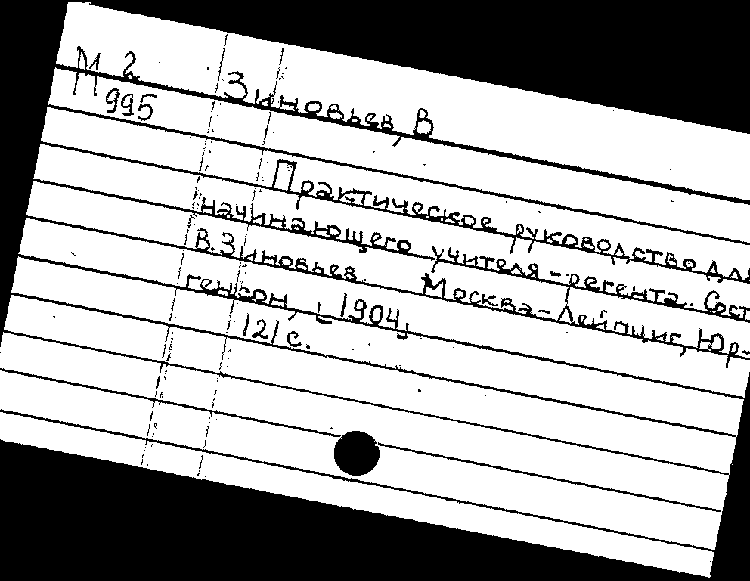 М 2 Зиновьев, В
995
Практическое руководство для
начинающего учителя-регента. Сост.
В. Зиновьев. Москва-Лейпциг, Юр-
генсон, [1904]
121 с.